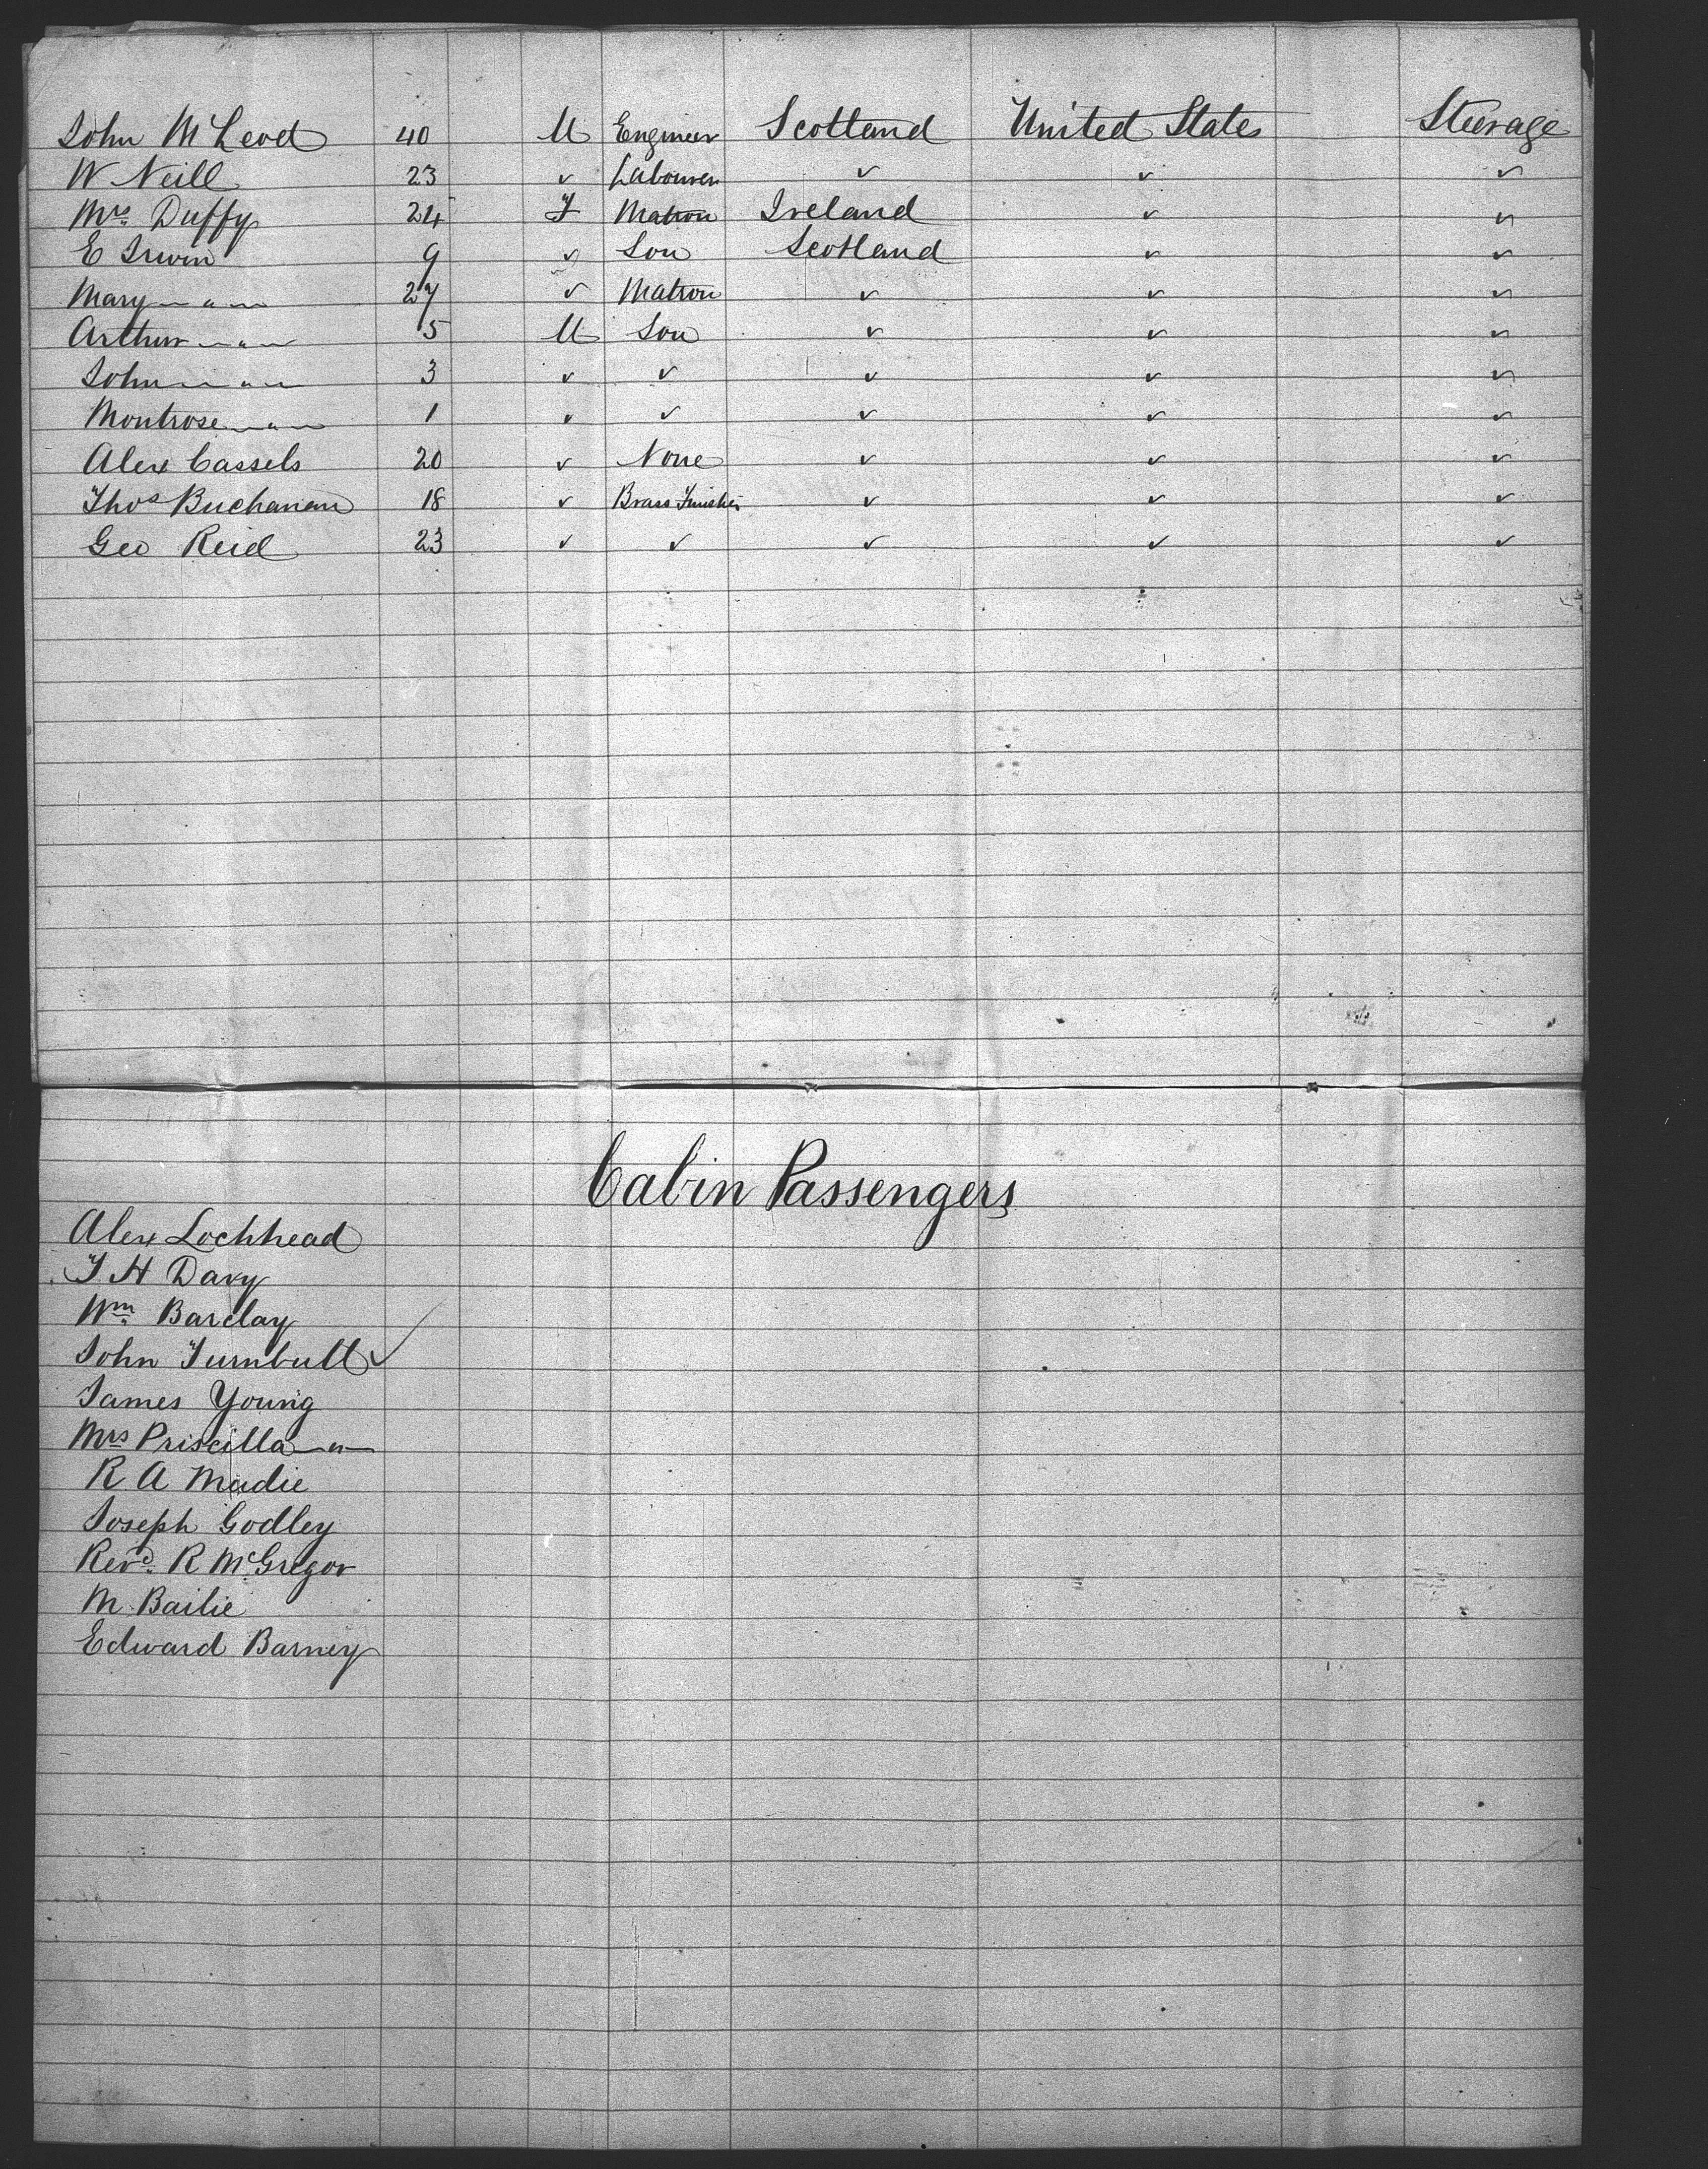 John McLeod 40 M Engineer Scotland United States Steerage
W Neill 23 ✓ Labourer ✓ ✓ ✓
Mrs Duffy 24 F Matron Ireland ✓ ✓
E Irwin 9 ✓ Son Scotland ✓ ✓
Mary — " — 27 ✓ Matron ✓ ✓ ✓
Arthur — " — 5 M Son ✓ ✓ ✓
John — " — 3 ✓ ✓ ✓ ✓ ✓
Montrose — " — 1 ✓ ✓ ✓ ✓ ✓
Alex Cassels 20 ✓ None ✓ ✓ ✓
Thos Buchanan 18 ✓ Brass Finisher ✓ ✓ ✓
Geo Reid 23 ✓ ✓ ✓ ✓ ✓
Cabin Passengers
Alex Lochhead
T. H Davy
Wm Barclay
John Turnbull ✓
James Young
Mrs Priscilla — " —
R A Mudie
Joseph Godley
Revd. R McGregor
M. Bailie
Edward Barney